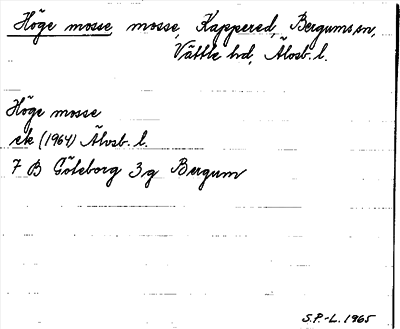 Höge mosse mosse, Kappered, Bergums sn,
Vättle hd, Älvsb. l.
Höge mosse
ek (1964) Älvsb. l.
7 B Göteborg 3g Bergum
S.P.-L. 1965